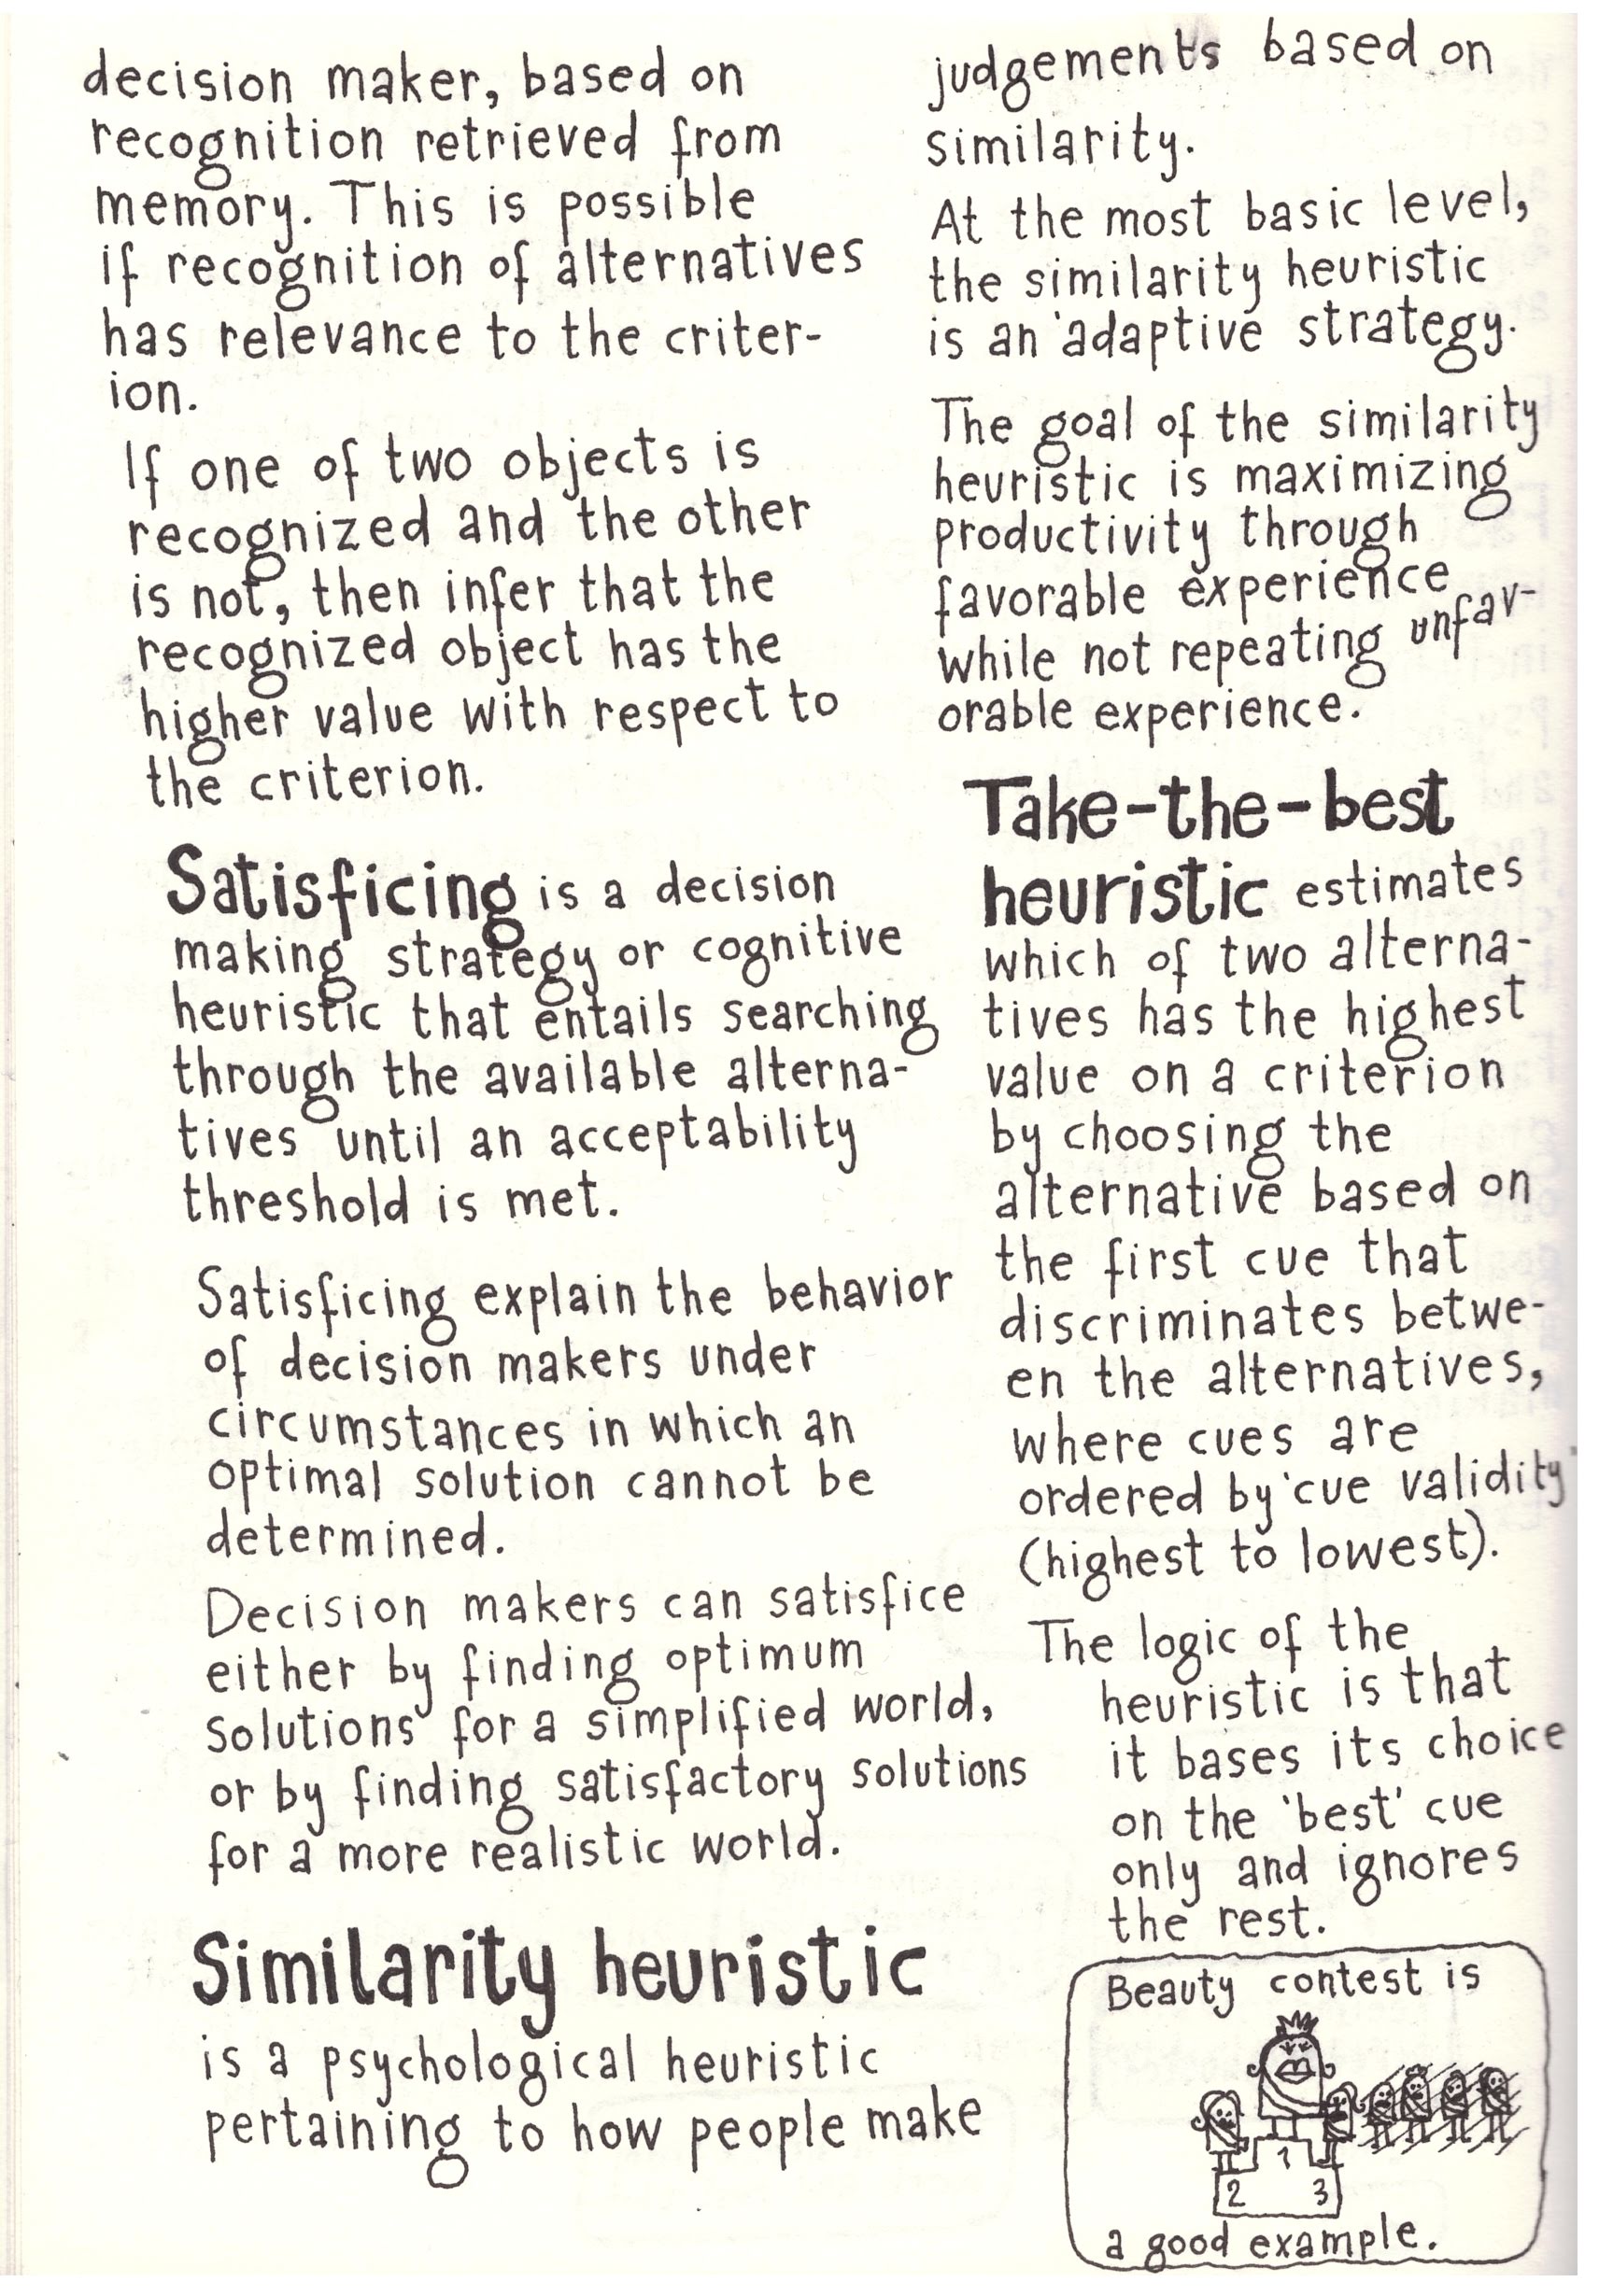 decision maker, based on
recognition retrieved from
memory. This is possible
if recognition of alternatives
has relevance to the criter-
ion.
If one of two objects is
recognized and the other
is not, then infer that the
recognized object has the
higher value with respect to
the criterion.
Satisficing is a decision
making strategy or cognitive
heuristic that entails searching
through the available alterna-
tives until an acceptability
threshold is met.
Satisficing explain the behavior
of decision makers under
circumstances in which an
optimal solution cannot be
determined.
Decision makers can satisfice
either by finding optimum
solutions for a simplified world,
or by finding satisfactory solutions
for a more realistic world.
Similarity heuristic
is a psychological heuristic
pertaining to how people make
judgements based on
similarity.
At the most basic level,
the similarity heuristic
is an adaptive strategy.
The goal of the similarity
heuristic is maximizing
productivity through
favorable experience
while not repeating unfav-
orable experience.
Take-the-best
heuristic estimates
which of two alterna-
tives has the highest
value on a criterion
by choosing the
alternative based on
the first cue that
discriminates betwe-
en the alternatives,
where cues are
ordered by 'cue validity'
(highest to lowest).
The logic of the
heuristic is that
it bases its choice
on the 'best' cue
only and ignores
the rest.
Beauty contest is
1
2 3
a good example.